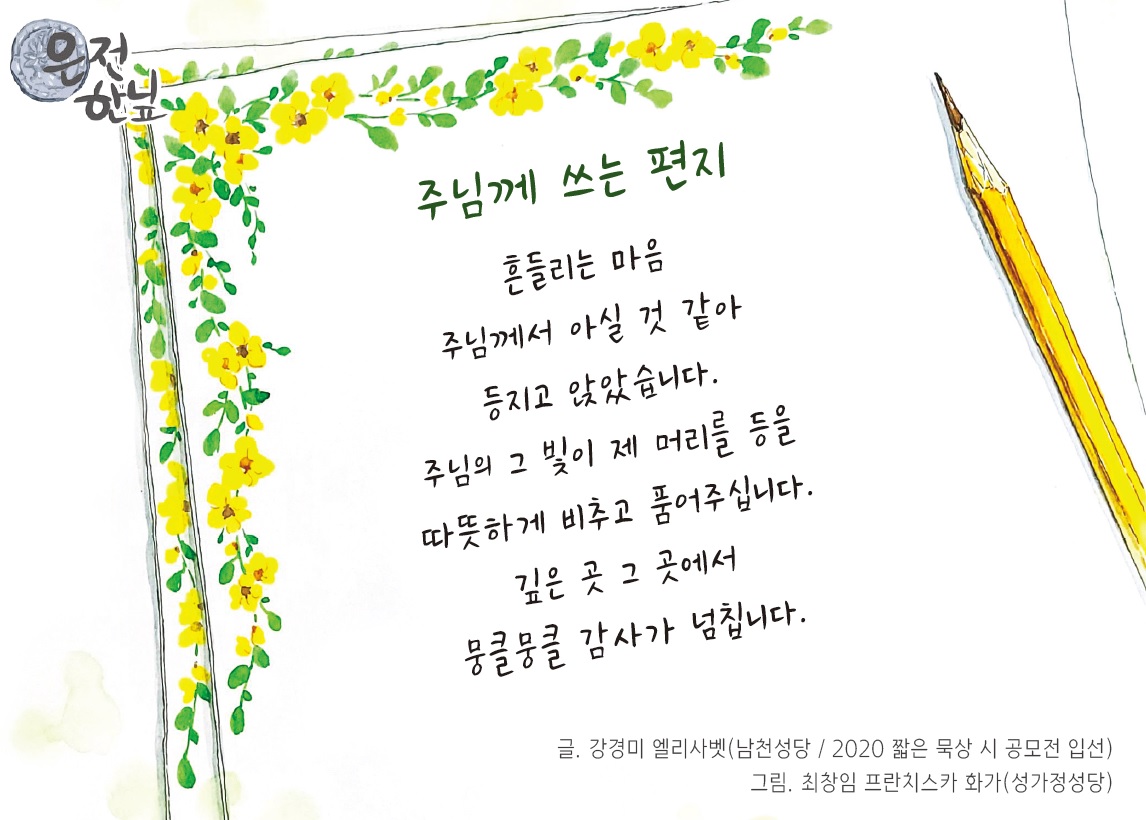 은전
한닢
주님께 쓰는 편지
흔들리는 마음
주님께서 아실 것 같아
등지고 앉았습니다.
주님의 그 빛이 제 머리를 등을
따뜻하게 비추고 품어주십니다.
깊은 곳 그 곳에서
뭉클뭉클 감사가 넘칩니다.
글. 강경미 엘리사벳(남천성당 / 2020 짧은 묵상 시 공모전 입선)
그림. 최창임 프란치스카 화가(성가정성당)